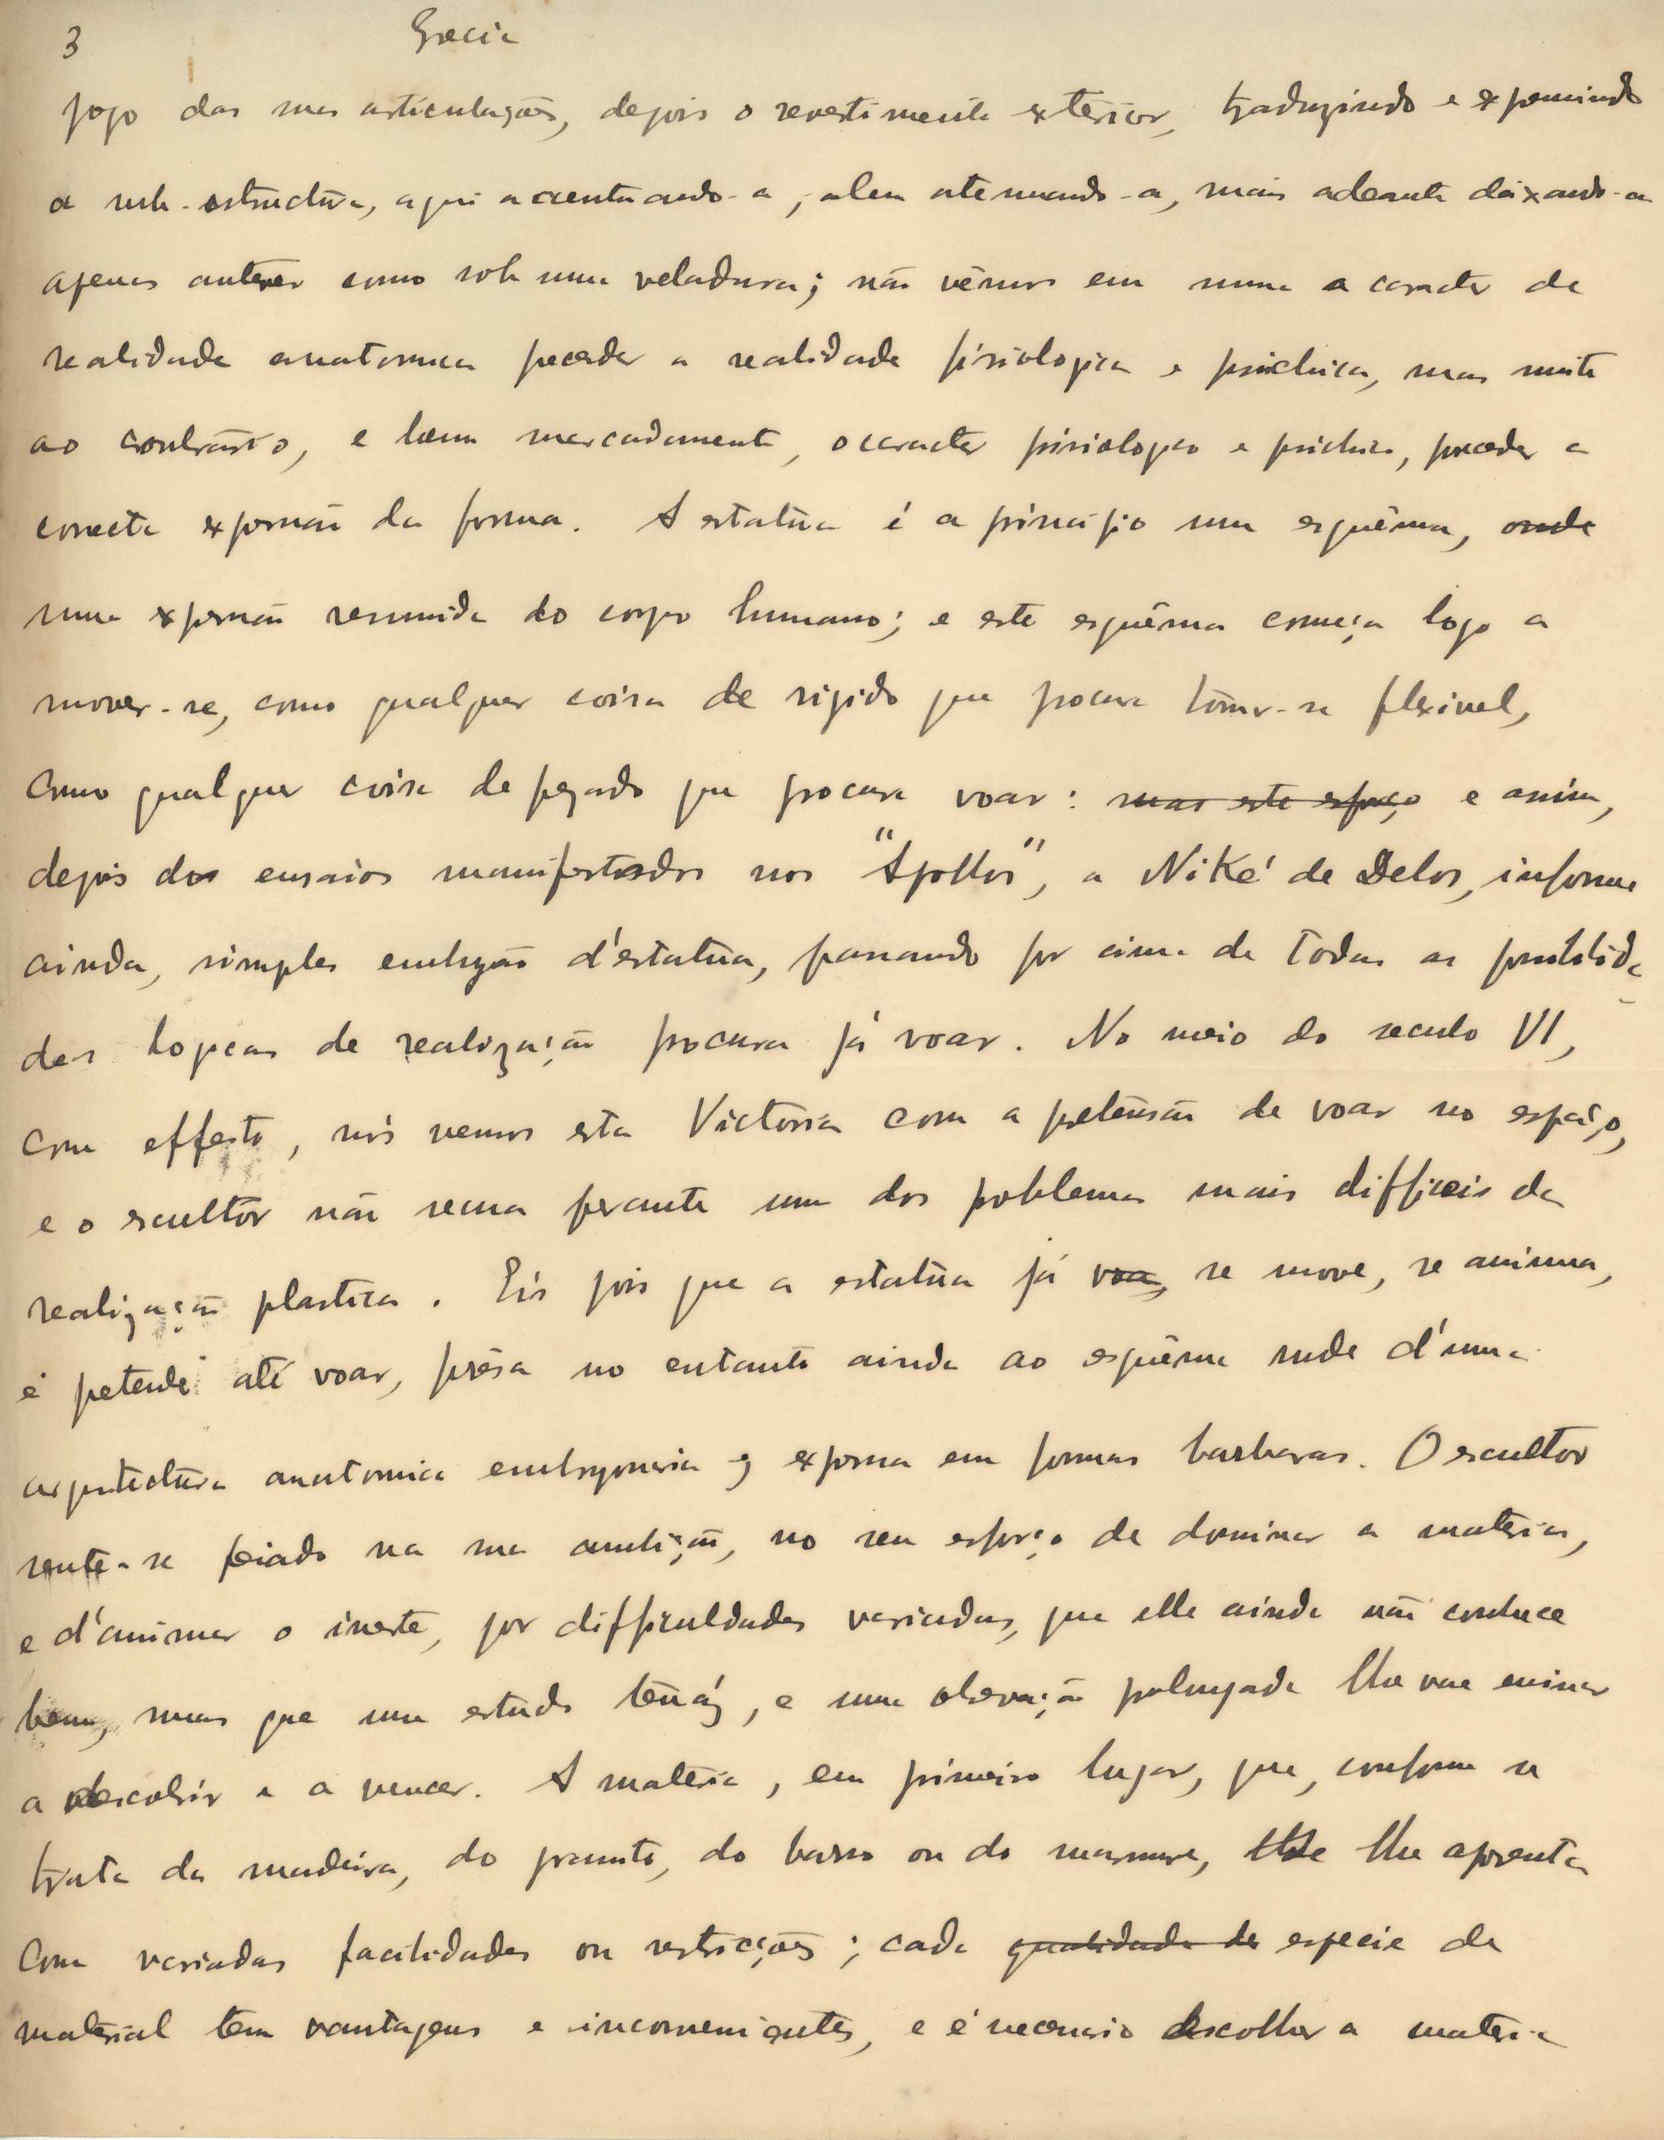 3 Grecia
jogo das suas articulações, depois o revestimento exterior, traduzindo e exprimindo
a sub-estructura, aqui accentuando-a, alem atenuando-a, mais adeante deixando-a
apenas antever como sob uma veladura; não vêmos em suma o caracter de
realidade anatomica preceder a realidade fisiologica e psichica, mas muito
ao contrário, e bem marcadamente, o caracter fisiologico e psichico, preceder a
correcta expressão da forma. A estatua é a principio um esquêma, onde
uma expressão resumida do corpo humano; e este esquêma começa logo a
mover-se, como qualquer coisa de rigido que procura tornar-se flexivel,
como qualquer coisa de pezado que procura voar: mas este esforço e assim,
depois dos ensaios manifestados nos "Apollos", a Niké de Delos, informe
ainda, simples embryão d'estatua, passando por cima de todas as possibilida
des logicas de realização procura já voar. No meio do seculo VI,
com effeito, nós vemos esta Victoria com a pretensão de voar no espaço,
e o escultor não recua perante um dos problemas mais difficeis da
realização plastica. Eis pois que a estatua já voa, se move, se anima,
e pretende até voar, prêsa no entanto ainda ao esquêma rude d'uma
arquitectura anatomica embryonaria q expressa em formas barbaras. O escultor
sente-se peiado na sua ambição, no seu esforço de dominar a materia,
e d'animar o inerte, por difficuldades variadas, que elle ainda não conhece
bem, mas que um estudo tenáz, e uma observação prolongada lhe vae ensinar
a descobrir e a vencer. A materia, em primeiro lugar, que, conforme se
trata da madeira, do granito, do barro ou do marmore, lhe apresenta
com variadas facilidades ou restricções; cada qualidade de especie de
material tem vantagens e inconvenientes, e é necessario escolher a materia